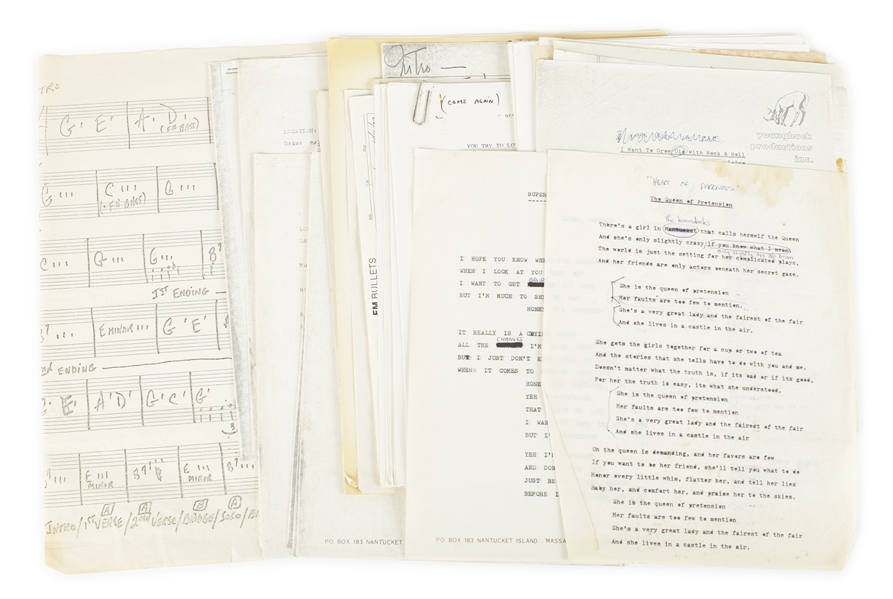 TRO
G' E'
A' D'
(F# BASS)
G...
C...
(F# BASS)
G...
C...
G...
G...
B7
1ST ENDING
...
E MINOR...
G' E'
ENDING
E'
A' D'
G' C'
G'
B
E...
MINOR
E...
MINOR
B7
INTRO/1ST VERSE/2ND VERSE/BRIDGE/SOLO/
A
A
B
A
LOCATION:
Intro —
(COME AGAIN)
YOU TRY TO
EM BULLETS
PO BOX 183 NANTUCKET
SUPER
I HOPE YOU KNOW WHE
WHEN I LOOK AT YOU
I WANT TO GET
BUT I'M MUCH TO
HONE
IT REALLY IS A
ALL THE CHANGES I'M
BUT I JUST DON'T K
WHEN IT COMES TO
HONE
YEH
THAT
I WAN
BUT I'
YEH I'
AND DON
JUST BE
BEFORE I
PO BOX 183 NANTUCKET ISLAND . MASSA
youngbuck
productions
inc.
I Want To Grow Old With Rock & Roll
"HEART OF DARKNESS"
The Queen of Pretension
The boondocks
There's a girl in Nantucket that calls herself the Queen
And she's only slightly crazy if you know what I mean
The world is just the setting for her complicated plays,
And her friends are only actors beneath her secret gaze.
She is the queen of pretension
Her faults are too few to mention.
She's a very great lady and the fairest of the fair
And she lives in a castle in the air.
She gets the girls together for a cup or two of tea
And the stories that she tells have to do with you and me.
Doesn't matter what the truth is, if its bad or if its good,
For her the truth is easy, its what she understood.
She is the queen of pretension
Her faults are too few to mention
She's a very great lady and the fairest of the fair
And she lives in a castle in the air
Oh the queen is demanding, and her favors are few
If you want to be her friend, she'll tell you what to do
Honor every little whim, flatter her, and tell her lies
Baby her, and comfort her, and praise her to the skies.
She is the queen of pretension
Her faults are too few to mention
She's a very great lady and the fairest of the fair
And she lives in a castle in the air.